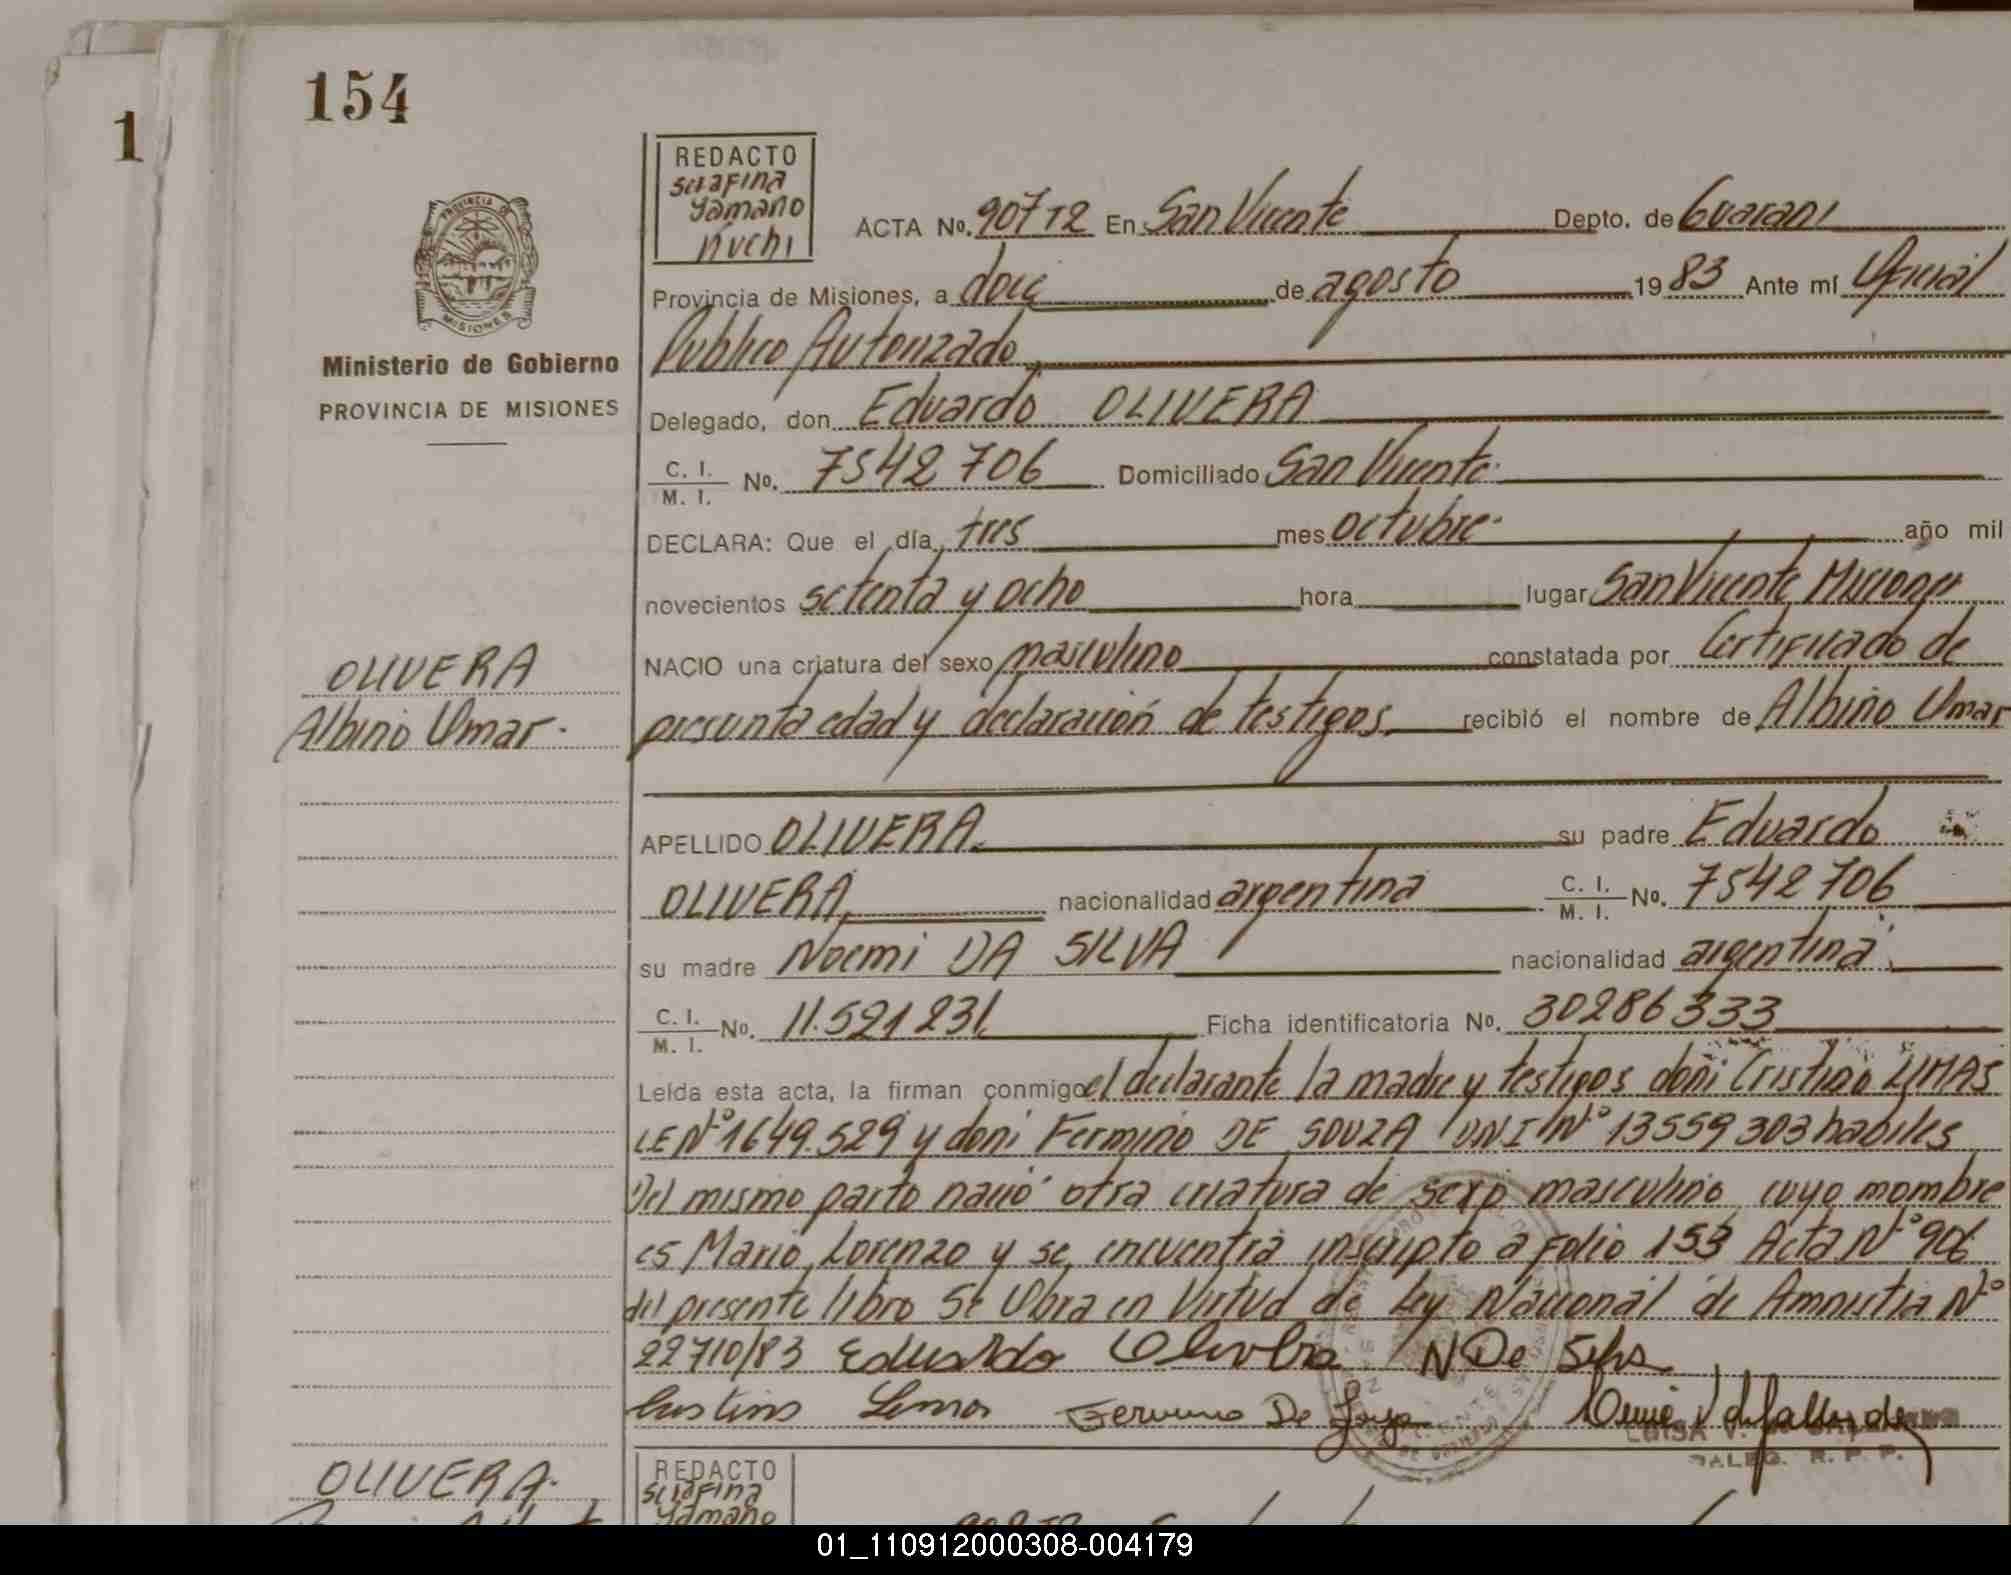 154
1
REDACTO
Serafina
Yamano
Ñuchi
ACTA No. 907 T2 En San Vicente Depto. de Guarani
Provincia de Misiones, a doce de agosto 1983 Ante mí Oficial
Publico Autorizado
PROVINCIA DE
MISIONES
Ministerio de Gobierno
PROVINCIA DE MISIONES
Delegado, don Eduardo OLIVERA
C. I.
M. I. No. 7542706 Domiciliado San Vicente
DECLARA: Que el día tres mes octubre año mil
novecientos setenta y ocho hora lugar San Vicente Misiones
NACIO una criatura del sexo masculino constatada por Certificado de
OLIVERA
Albino Omar
presunta edad y declaración de testigos recibió el nombre de Albino Omar
APELLIDO OLIVERA su padre Eduardo
OLIVERA nacionalidad argentina C. I. M. I. No. 7542706
su madre Noemi DA SILVA nacionalidad argentina
C. I.
M. I. No. 11.521231 Ficha identificatoria No. 30286333
Leída esta acta, la firman conmigo el declarante la madre y testigos don: Cristino LIMAS
LE Nº 1649.529 y don: Fermino DE SOUZA DNI Nº 13559303 habiles
Del mismo parto nació otra criatura de sexo masculino cuyo mombre
es Mario Lorenzo y se encuentra inscripto a Folio 153 Acta Nº 906
del presente libro Se Obra en Virtud de Ley Nacional de Amnistia Nº
22710/83 Eduardo Olivera N De Silva
LUISA V.
R. P. P.
OLIVERA
REDACTO
Serafina
Yamano
01_110912000308-004179